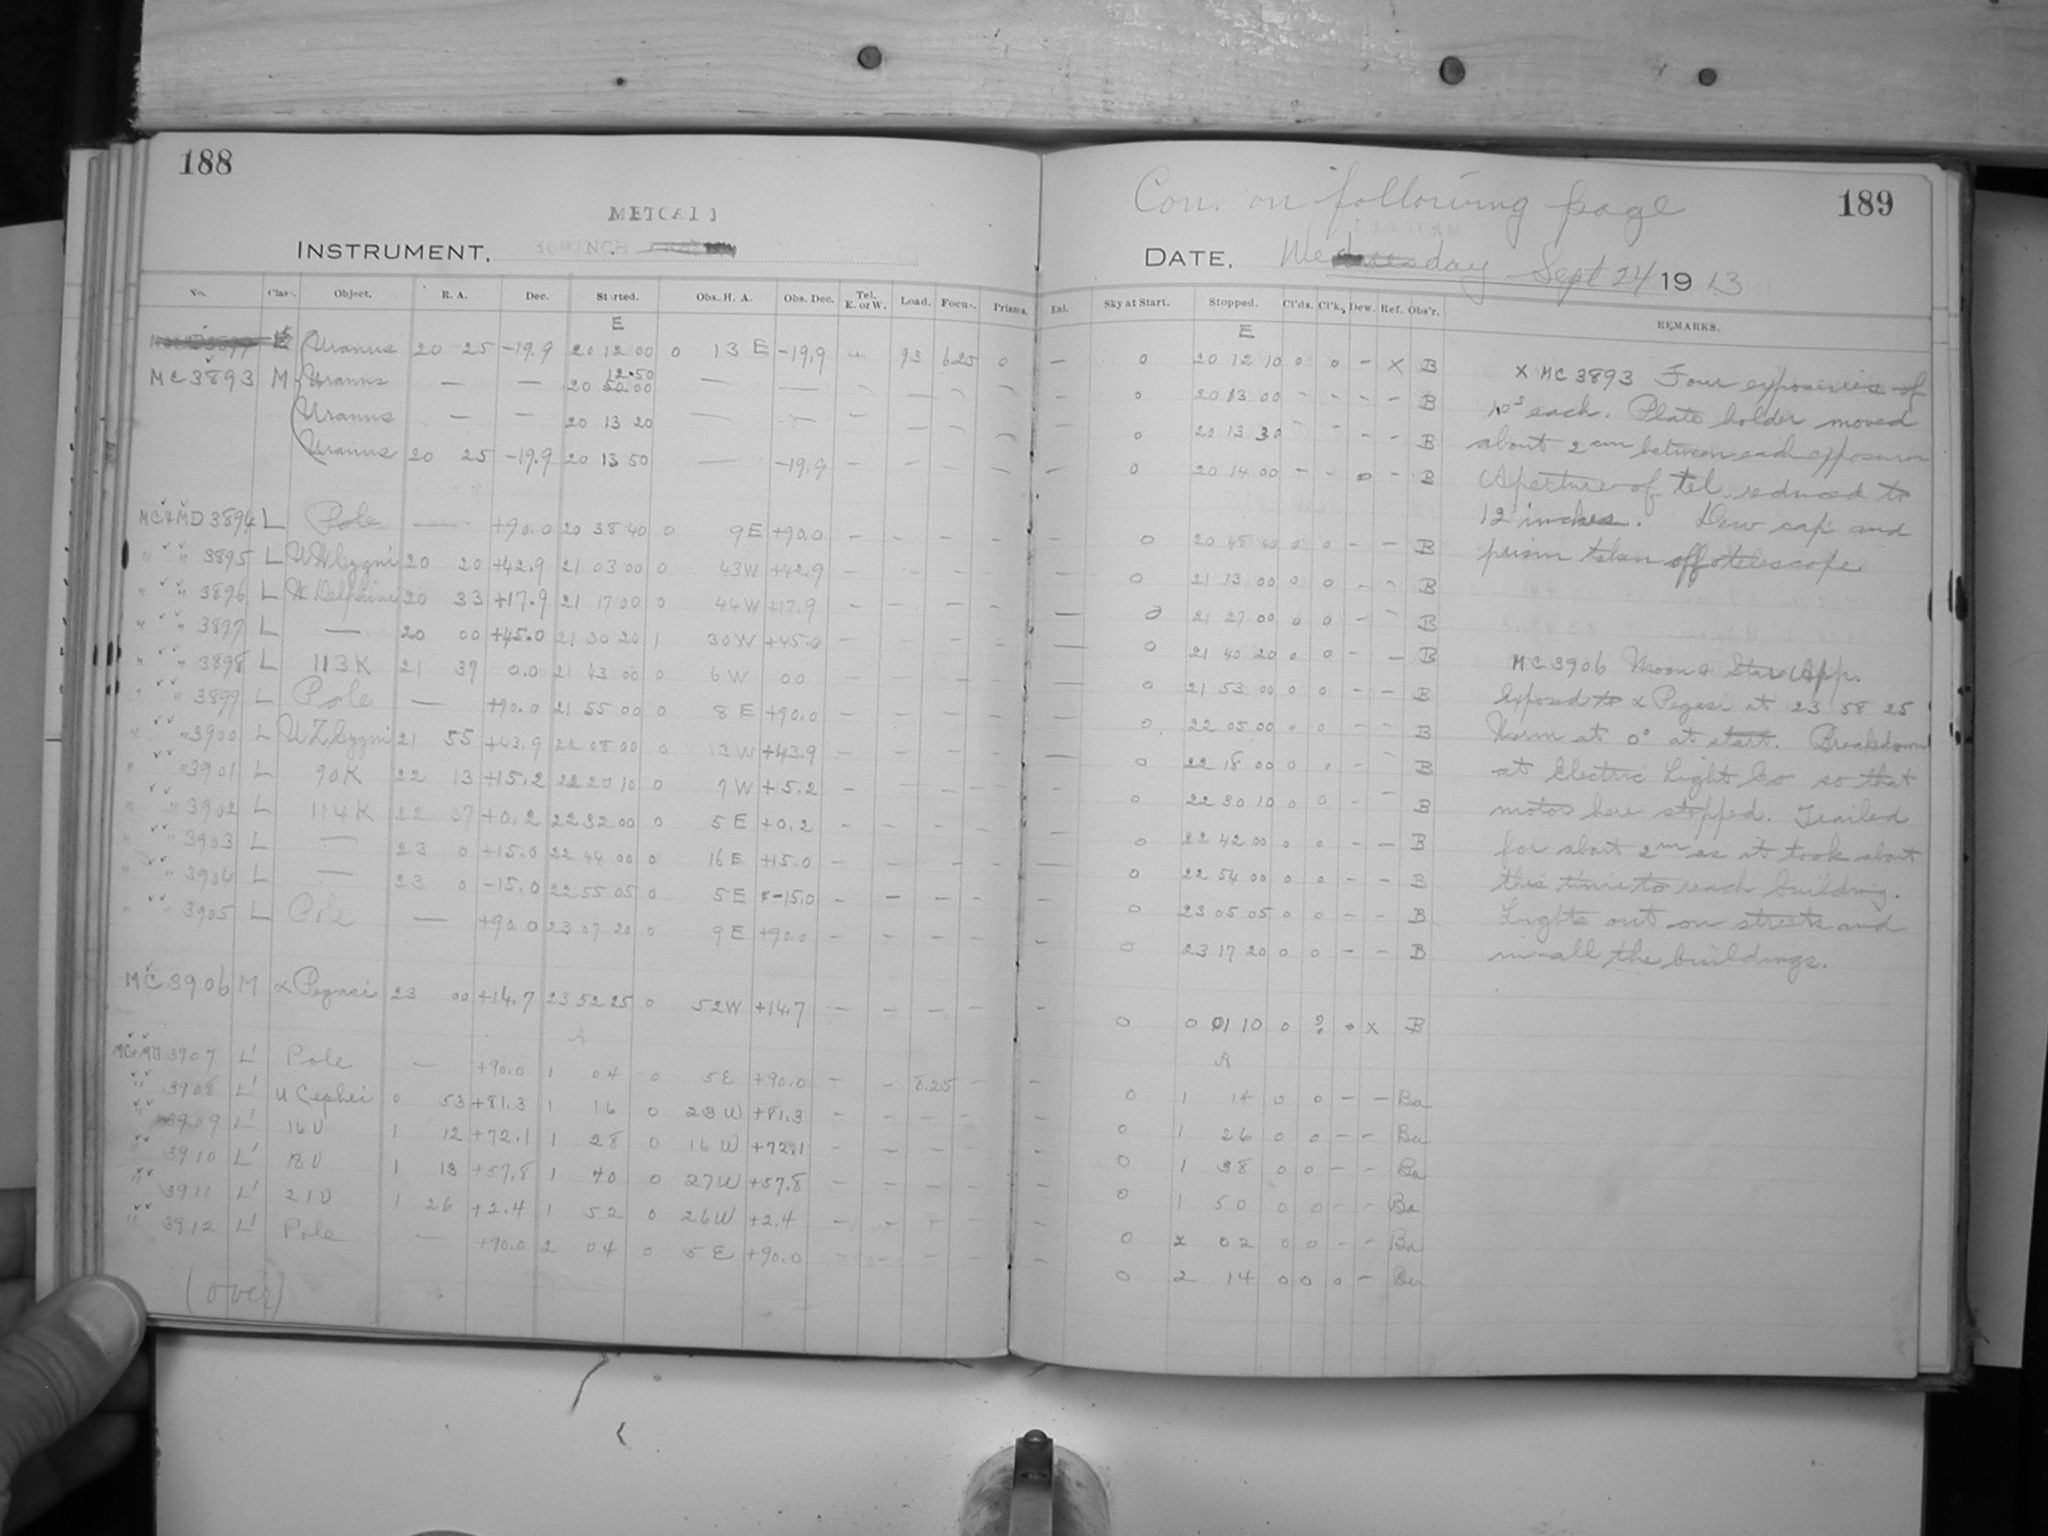 188
METCALF
INSTRUMENT, INCH
No. Class. Object. R. A. Dec. Started. Obs. H. A. Obs. Dec. Tel. E. or W. Load. Focus. Prisms.
E
Uranus 20 25 -19.9 20 12 00 0 13 E -19.9 - 93 6.25 0
12.50
MC 3893 M Uranus — — 20 50.00 — —
Uranus — — 20 13 20 — —
Uranus 20 25 -19.9 20 13 50 — -19.9 - - - -
MC & MD 3894 L Pole — +90.0 20 38 40 0 9 E +90.0 - - - -
" " 3895 L W Cygni 20 20 +42.9 21 03 00 0 43 W +42.9 - - - -
" " 3896 L W Delphini 20 33 +17.9 21 17 00 0 44 W +17.9 - - - -
" " 3897 L — 20 00 +45.0 21 30 20 1 30 W +45.0 - - - -
" " 3898 L 113 K 21 37 0.0 21 43 00 0 6 W 00 - - - -
" " 3899 L Pole — +90.0 21 55 00 0 8 E +90.0 - - - -
" " 3900 L Cygni 21 55 +43.9 22 08 00 0 13 W +43.9 - - - -
" " 3901 L 90 K 22 13 +15.2 22 20 10 0 7 W +15.2 - - - -
" " 3902 L 114 K 22 37 +0.2 22 32 00 0 5 E +0.2 - - - -
" " 3903 L — 23 0 +15.0 22 44 00 0 16 E +15.0 - - - -
" " 3904 L — 23 0 -15.0 22 55 05 0 5 E -15.0 - - - -
" " 3905 L Pole — +90.0 23 07 20 0 9 E +90.0 - - - -
MC 3906 M α Pegasi 23 00 +14.7 23 52 25 0 52 W +14.7 - - - -
A
MC & MD 3907 L' Pole — +90.0 1 04 0 5 E +90.0 - - 6.25 -
" 3908 L' U Cephei 0 53 +81.3 1 16 0 23 W +81.3 - - - -
" 3909 L' 16 U 1 12 +72.1 1 28 0 16 W +72.1 - - - -
" 3910 L' 18 U 1 13 +57.8 1 40 0 27 W +57.8 - - - -
" 3911 L' 21 U 1 26 +2.4 1 52 0 26 W +2.4 - - - -
" 3912 L' Pole — +90.0 2 04 0 5 E +90.0 - - - -
(over)
Con. on following page
189
DATE, Wednesday Sept 24 1913
Enl. Sky at Start. Stopped. Cl'ds. Cl'k. Dew. Ref. Obs'r. REMARKS.
E
— 0 20 12 10 0 0 - X B
0 20 13 00 - - - - B
0 20 13 30 - - - - B
— 0 20 14 00 - - 0 - B
— 0 20 48 40 0 0 - - B
— 0 21 13 00 0 0 - - B
— 0 21 27 00 0 0 - - B
— 0 21 40 20 0 0 - - B
— 0 21 53 00 0 0 - - B
— 0 22 05 00 0 0 - - B
— 0 22 18 00 0 0 - - B
— 0 22 30 10 0 0 - - B
— 0 22 42 00 0 0 - - B
— 0 22 54 00 0 0 - - B
— 0 23 05 05 0 0 - - B
- 0 23 17 20 0 0 - - B
- 0 0 01 10 0 ? 0 X B
A
- 0 1 14 0 0 - - Ba
- 0 1 26 0 0 - - Ba
- 0 1 38 0 0 - - Ba
- 0 1 50 0 0 - - Ba
- 0 2 02 0 0 - - Ba
- 0 2 14 0 0 0 - Ba
X MC 3893 Four exposures of
10s each. Plate holder moved
about 2 cm between each exposure
Aperture of tel. reduced to
12 inches. Dew cap and
prism taken off telescope.
MC 3906 Moon & Star App.
exposed to α Pegasi at 23 58 25
at 0° at start. Breakdown
at Electric Light Co so that
motor here stopped. Trailed
for about 2m as it took about
this time to reach building.
Lights out on streets and
in all the buildings.